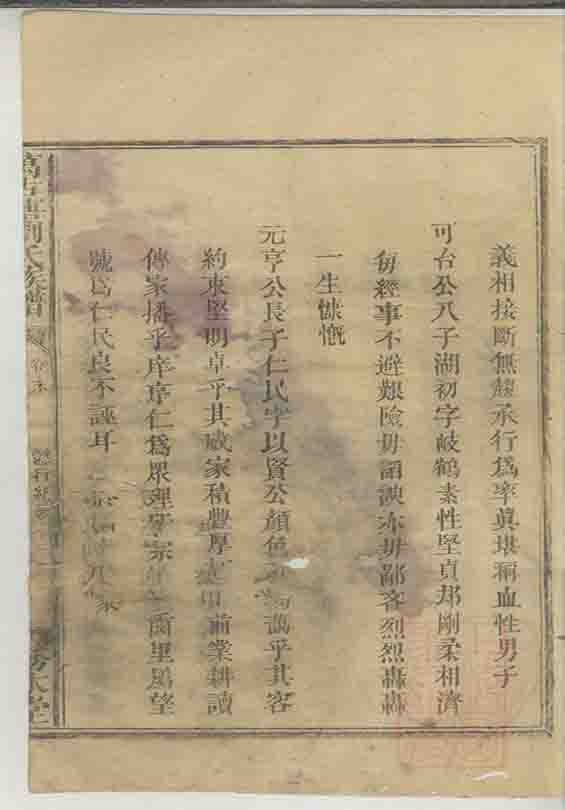 義相接斷無趨承行為率真堪稱血性男子
可台公八子湖初字岐鶴素性堅貞邦剛柔相濟
每經事不避艱險毋諂諛亦毋鄙吝烈烈轟轟
一生慷慨
元亨公長子仁民字以賢公顏色 藹乎其容
約束堅明卓乎其威家積豐厚 前業耕讀
傳家播乎庠序仁為眾理 宗 里凤望
號為仁民良不誣耳 家
萬 劉氏族譜 卷 行 堂